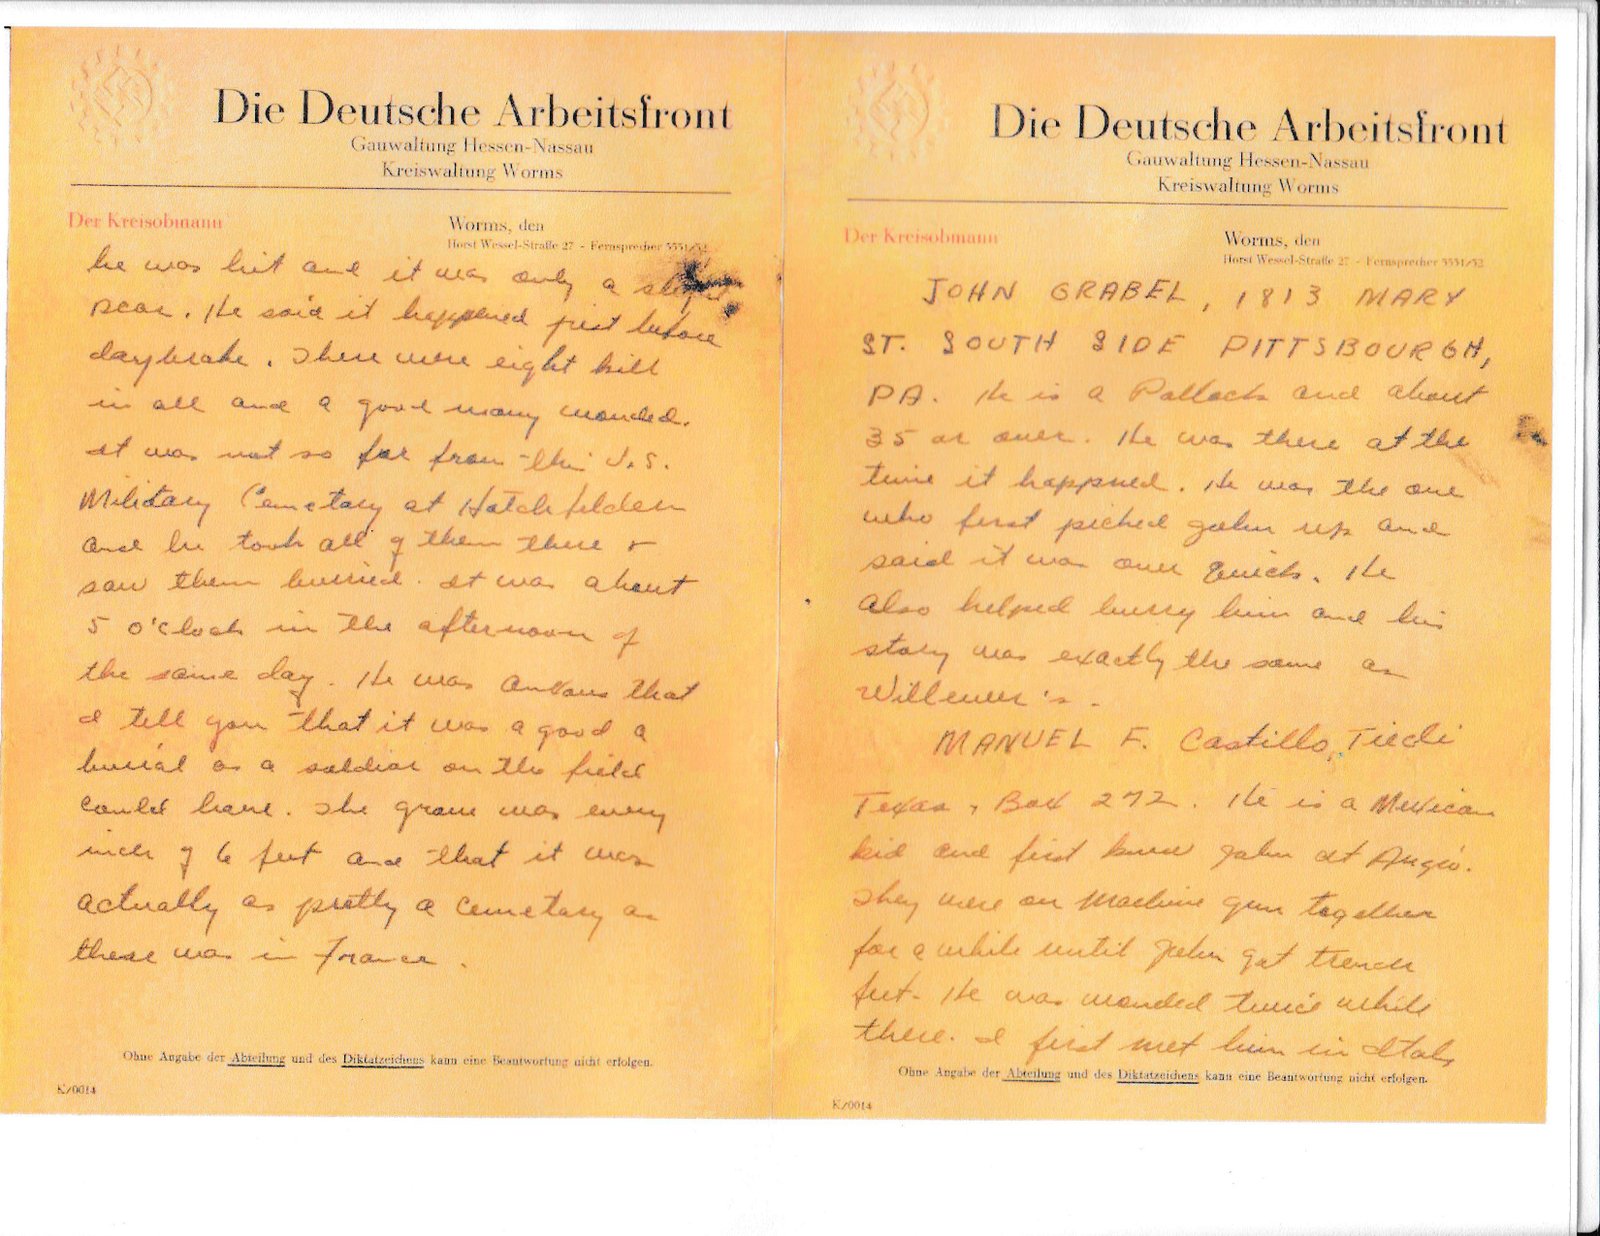 Die Deutsche Arbeitsfront
Gauwaltung Hessen-Nassau
Kreiswaltung Worms
Der Kreisobmann
Worms, den
Horst Wessel-Straße 27 - Fernsprecher 5551/52
he was hit and it was only a
scar. He said it happened just before
daybrake. There were eight kill
in all and a good many wonded.
It was not so far from the U.S.
Military Cemetary at Hotchfelden
and he took all of them there &
saw them burried. It was about
5 o'clock in the afternoon of
the same day. He was anxous that
I tell you that it was a good a
burial as a soldier on the field
could have. The grave was every
inch of 6 feet and that it was
actually as pretty a cemetary as
there was in France.
Ohne Angabe der Abteilung und des Diktatzeichens kann eine Beantwortung nicht erfolgen.
K/0014
Die Deutsche Arbeitsfront
Gauwaltung Hessen-Nassau
Kreiswaltung Worms
Der Kreisobmann
Worms, den
Horst Wessel-Straße 27 - Fernsprecher 5551/52
JOHN GRABEL, 1813 MARY
ST. SOUTH SIDE PITTSBOURGH,
PA. He is a Pollock and about
35 or over. He was there at the
time it happened. He was the one
who first picked John up and
said it was over quick. He
also helped burry him and his
story was exactly the same as
MANUEL F. Castillo,
Texas, Box 272. He is a Mexican
kid and first knew John at Angio.
They were on Machine gun together
for a while until John got trench
feet. He was wonded twice while
there. I first met him in Italy
Ohne Angabe der Abteilung und des Diktatzeichens kann eine Beantwortung nicht erfolgen.
K/0014